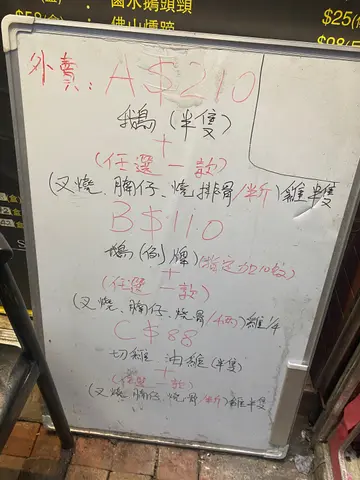 鹵水鵝頭頸
$25
佛山燻蹄
外賣：A $210
鵝（半隻）
+
（任選一款）
（叉燒、腩仔、燒排骨/半斤）雞半隻
B $110
鵝（例）牌（指定加10蚊）
+
（任選一款）
（叉燒、腩仔、燒骨/4両）雞1/4
C $88
切雞 油雞（半隻）
+
（任選一款）
（叉燒、腩仔、燒骨/半斤）雞半隻